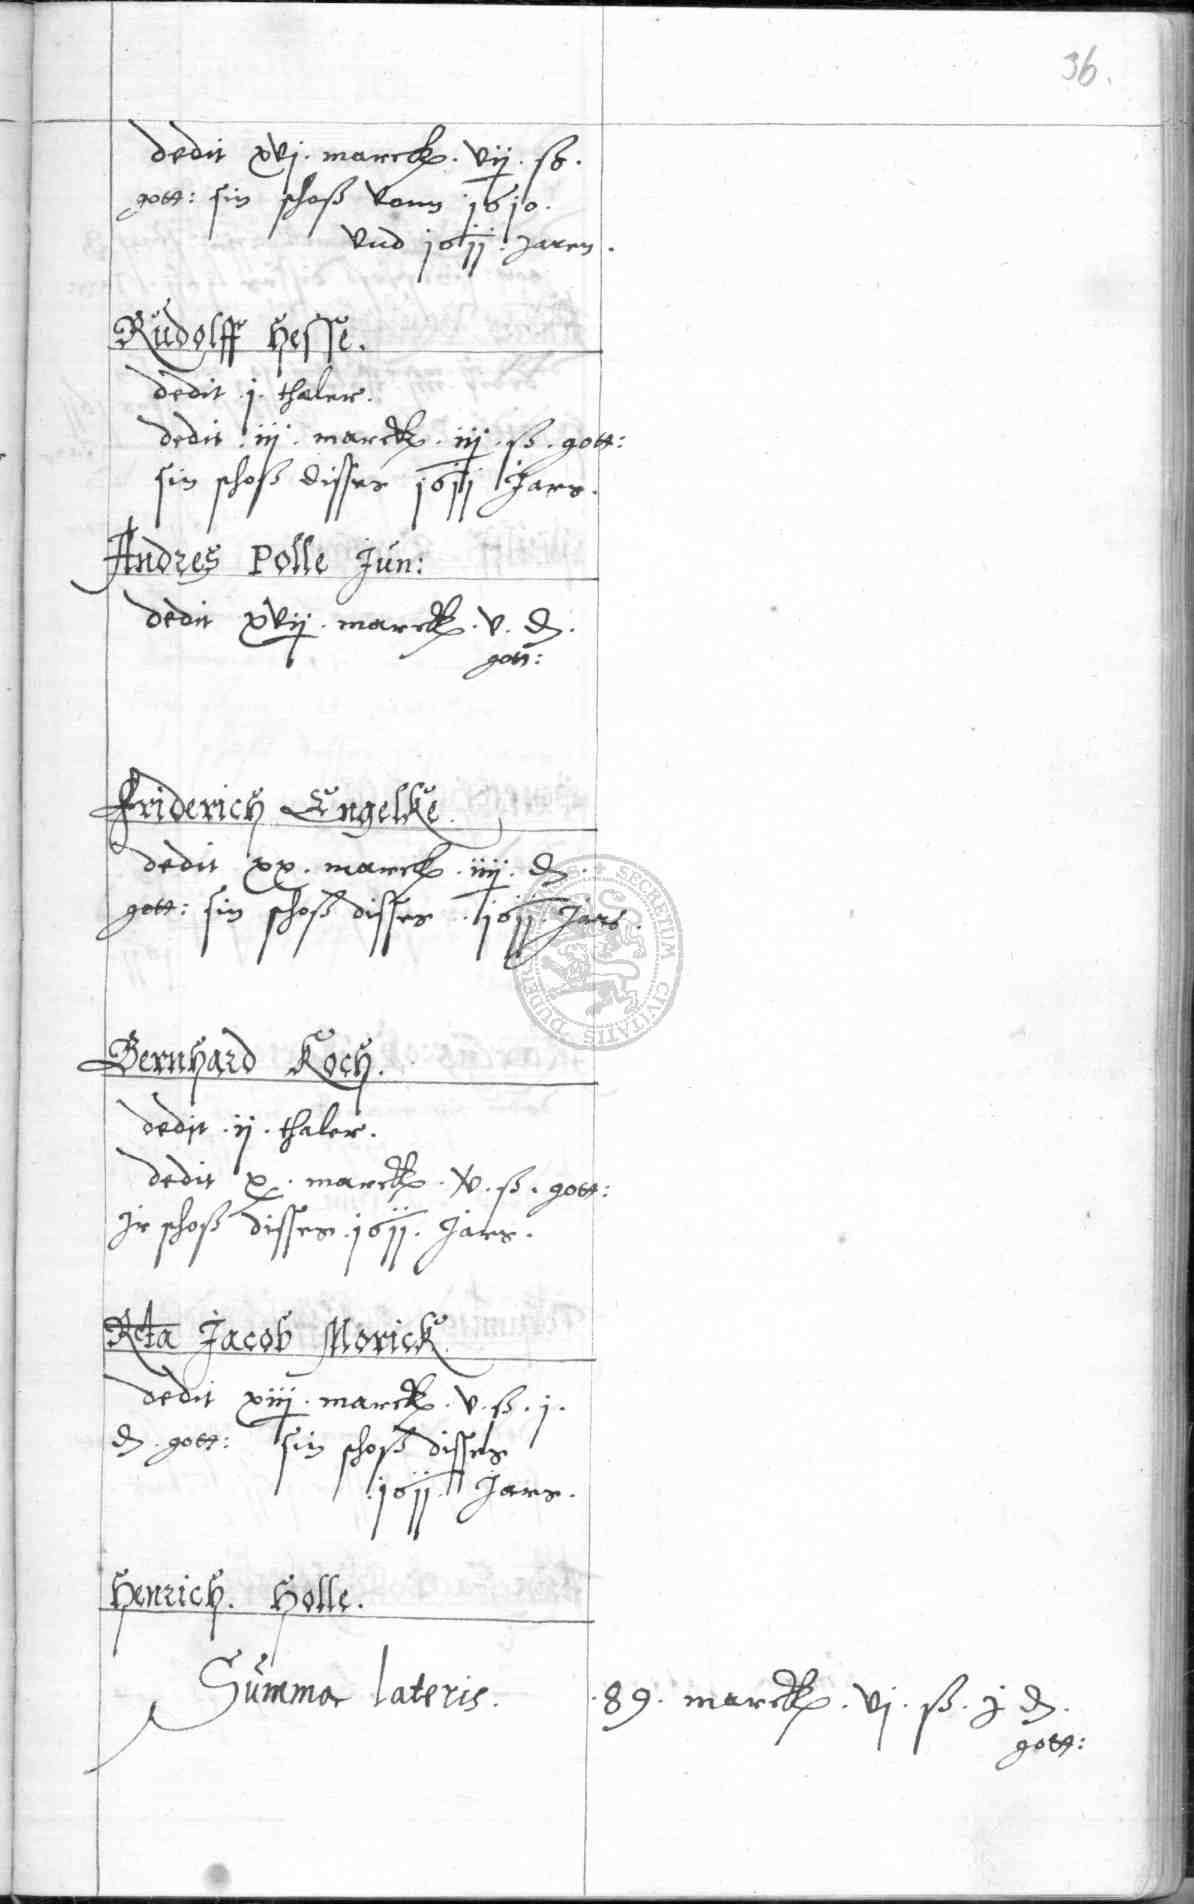 36.
dedit xvj. marck. vij. ß.
gott: sin schoß vonn 1610.
vnd 1611. Jaren.
Rudolff Hesse.
dedit .j. thaler.
dedit .iij. marck. iij. ß. gott:
sin schoß disses 1611 Jars.
Andres Polle Jun:
dedit xvij. marck. v. d.
gott:
Friderich Engelke.
dedit xx. marck. iiij. d.
gott: sin schoß disses .1611. Jars.
SECRETUM CIVITATIS DUDER
Bernhard Koch.
dedit .ij. thaler.
dedit x. marck. v. ß. gott:
Jr schoß disses .1611. Jars.
Rcta Jacob Morick.
dedit xiij. marck. v. ß. j.
d. gott: sin schoß disses
.1611. Jars.
Henrich. Holle.
Summa lateris. .89. marck. vj. ß. j d.
gott: